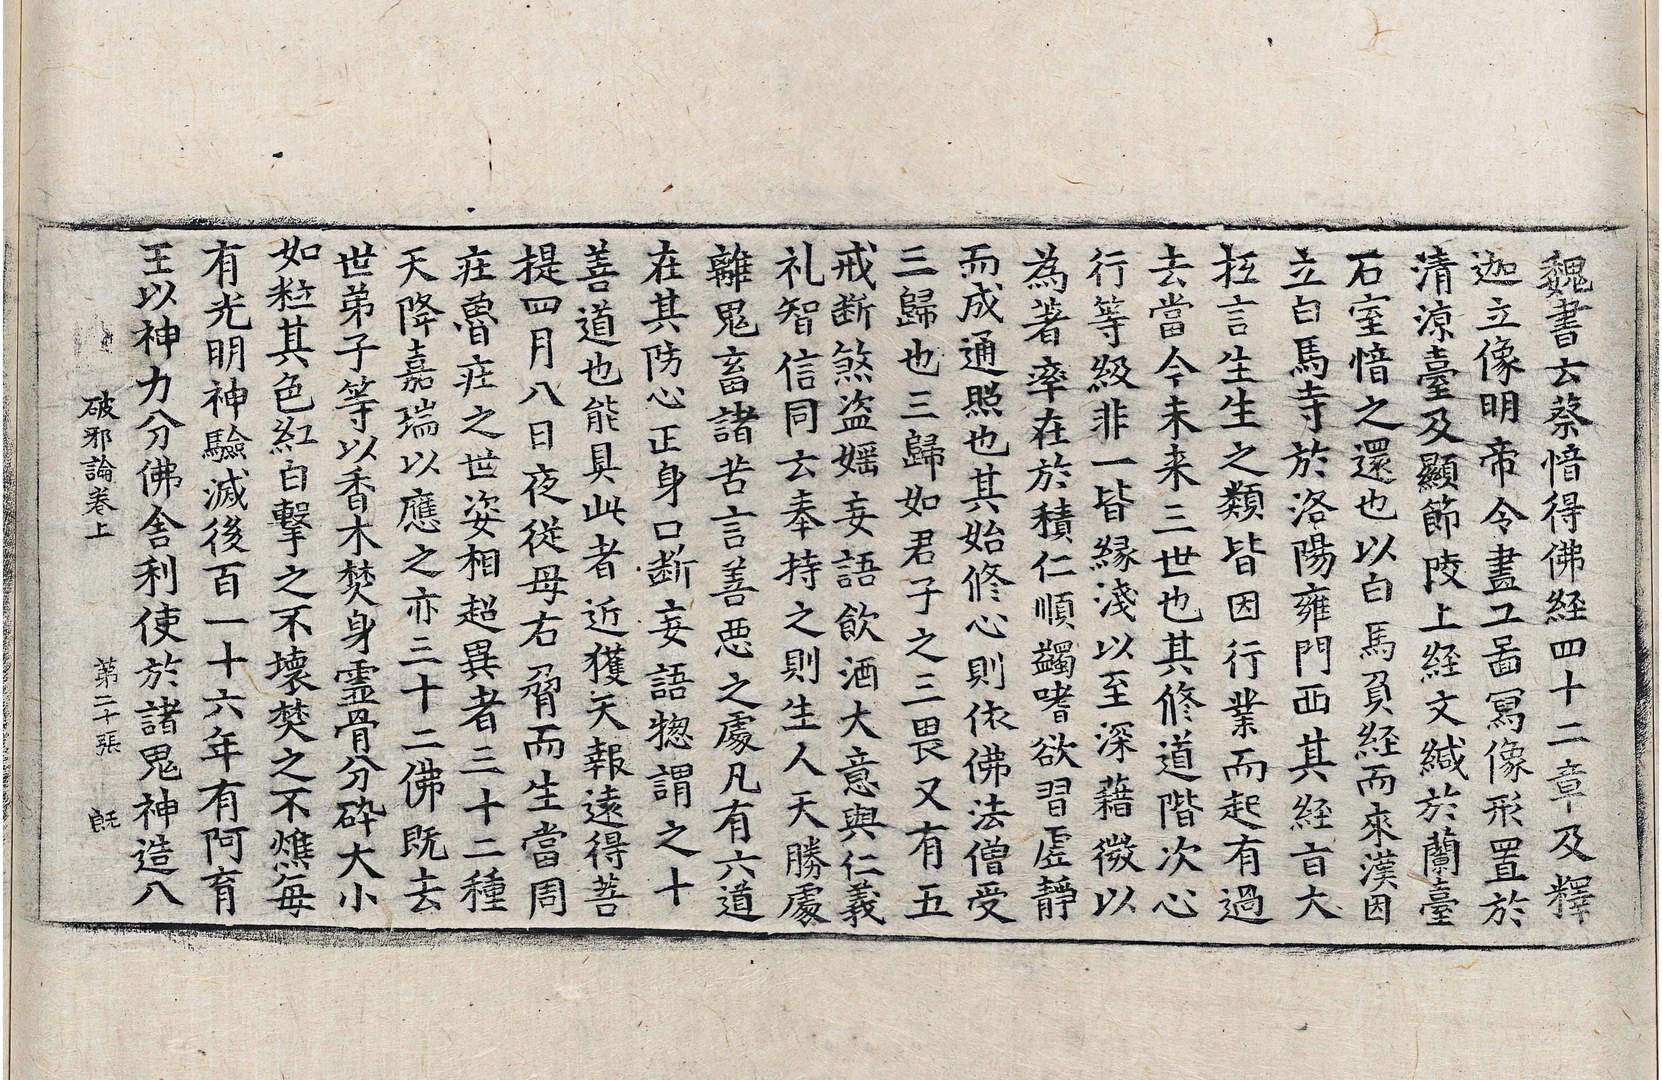 魏書云蔡愔得佛経四十二章及釋
迦立像明帝令畫工啚寫像形置於
清涼臺及顯節陵上経文緘於蘭臺
石室愔之還也以白馬負経而來漢因
立白馬寺於洛陽雍門西其経旨大
抂言生生之類皆因行業而起有過
去當今未来三世也其修道階次心
行等級非一皆緣淺以至深藉微以
為著率在於積仁順蠲嗜欲習虛靜
而成通照也其始修心則依佛法僧受
三歸也三歸如君子之三畏又有五
戒断煞盗婬妄語飲酒大意與仁義
礼智信同云奉持之則生人天勝處
離鬼畜諸苦言善惡之處凡有六道
在其防心正身口断妄語揔謂之十
善道也能具此者近獲天報遠得菩
提四月八日夜従母右脅而生當周
莊魯莊之世姿相超異者三十二種
天降嘉瑞以應之亦三十二佛既去
世弟子等以香木焚身靈骨分碎大小
如粒其色紅白擊之不壞焚之不燋每
有光明神驗滅後百一十六年有阿育
王以神力分佛舎利使於諸鬼神造八
破邪論卷上　第二十張　既